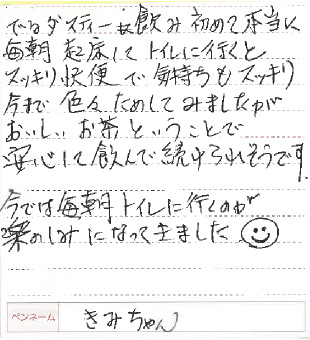 でるダスティー 飲み初めて本当に
毎朝 起床して トイレに行くと
スッキリ快便で 気持ちもスッキリ
今まで 色々ためしてみましたが
おいしい お茶 ということで
安心して飲んで続けられそうです.
今では毎朝トイレに行くのが
楽のしみになってきました
ペンネーム きみちゃん